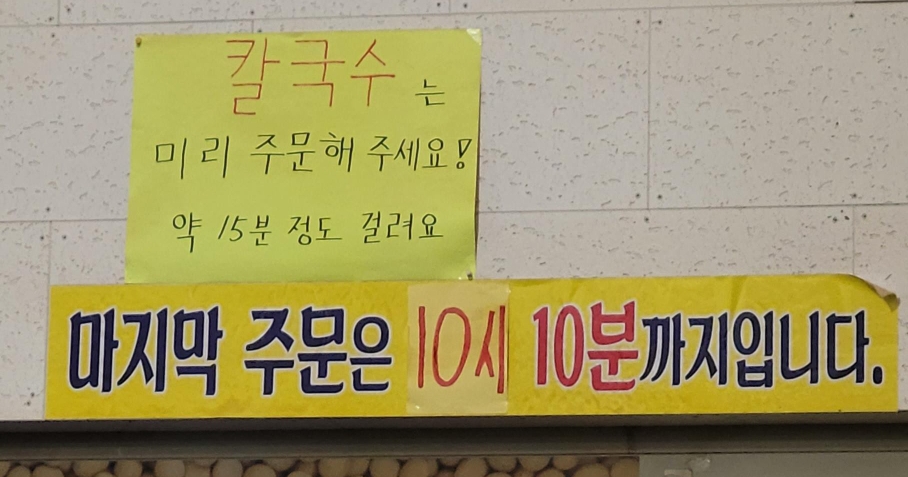 칼국수 는
미리 주문해 주세요!
약 15분 정도 걸려요
마지막 주문은 10시 10분까지입니다.